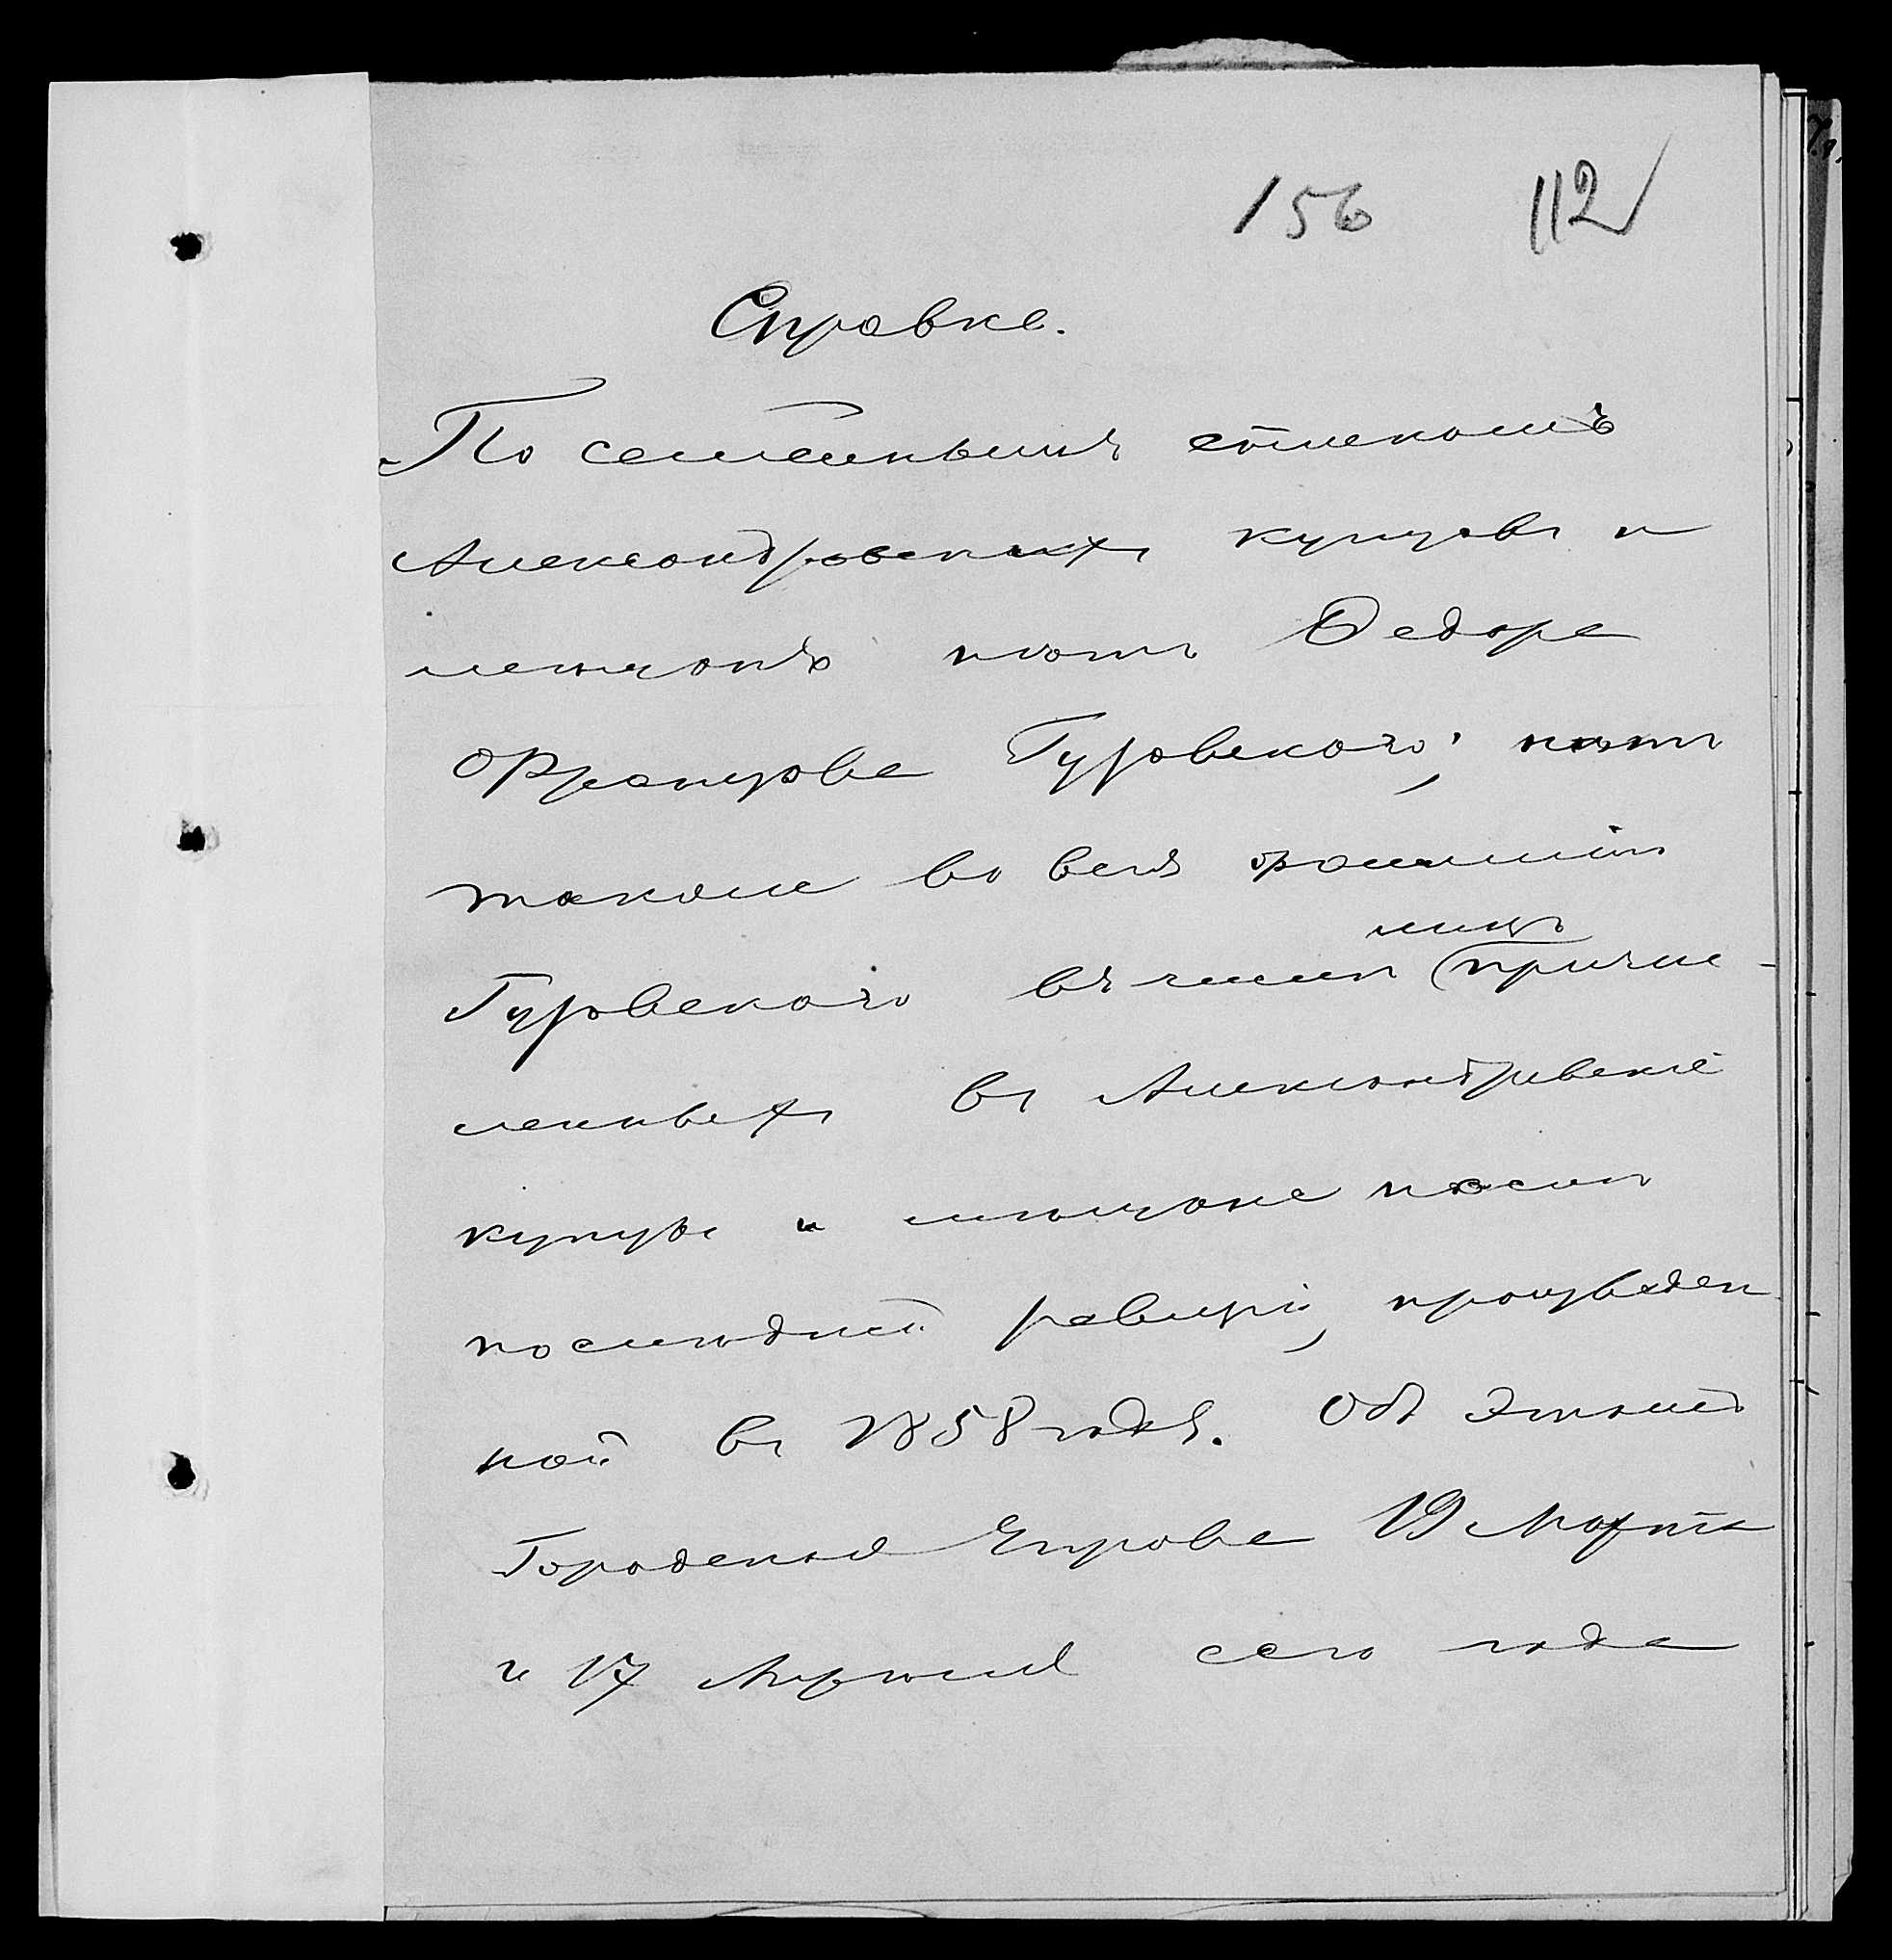 156 112
Справка.
По семейнымъ спискамъ
Александровскихъ купцовъ и
мещанъ нѣтъ Федора
Францова Гуровскаго; нѣтъ
такого во всей фамиліи
Гуровскаго въ числѣ лицъ причис-
ленныхъ въ Александровскіе
купцы и мѣщане послѣ
последней ревизіи, произведен
ной въ 1858 годѣ. Объ этомъ
Городская Управа 19 Марта
и 17 Апрѣля сего года